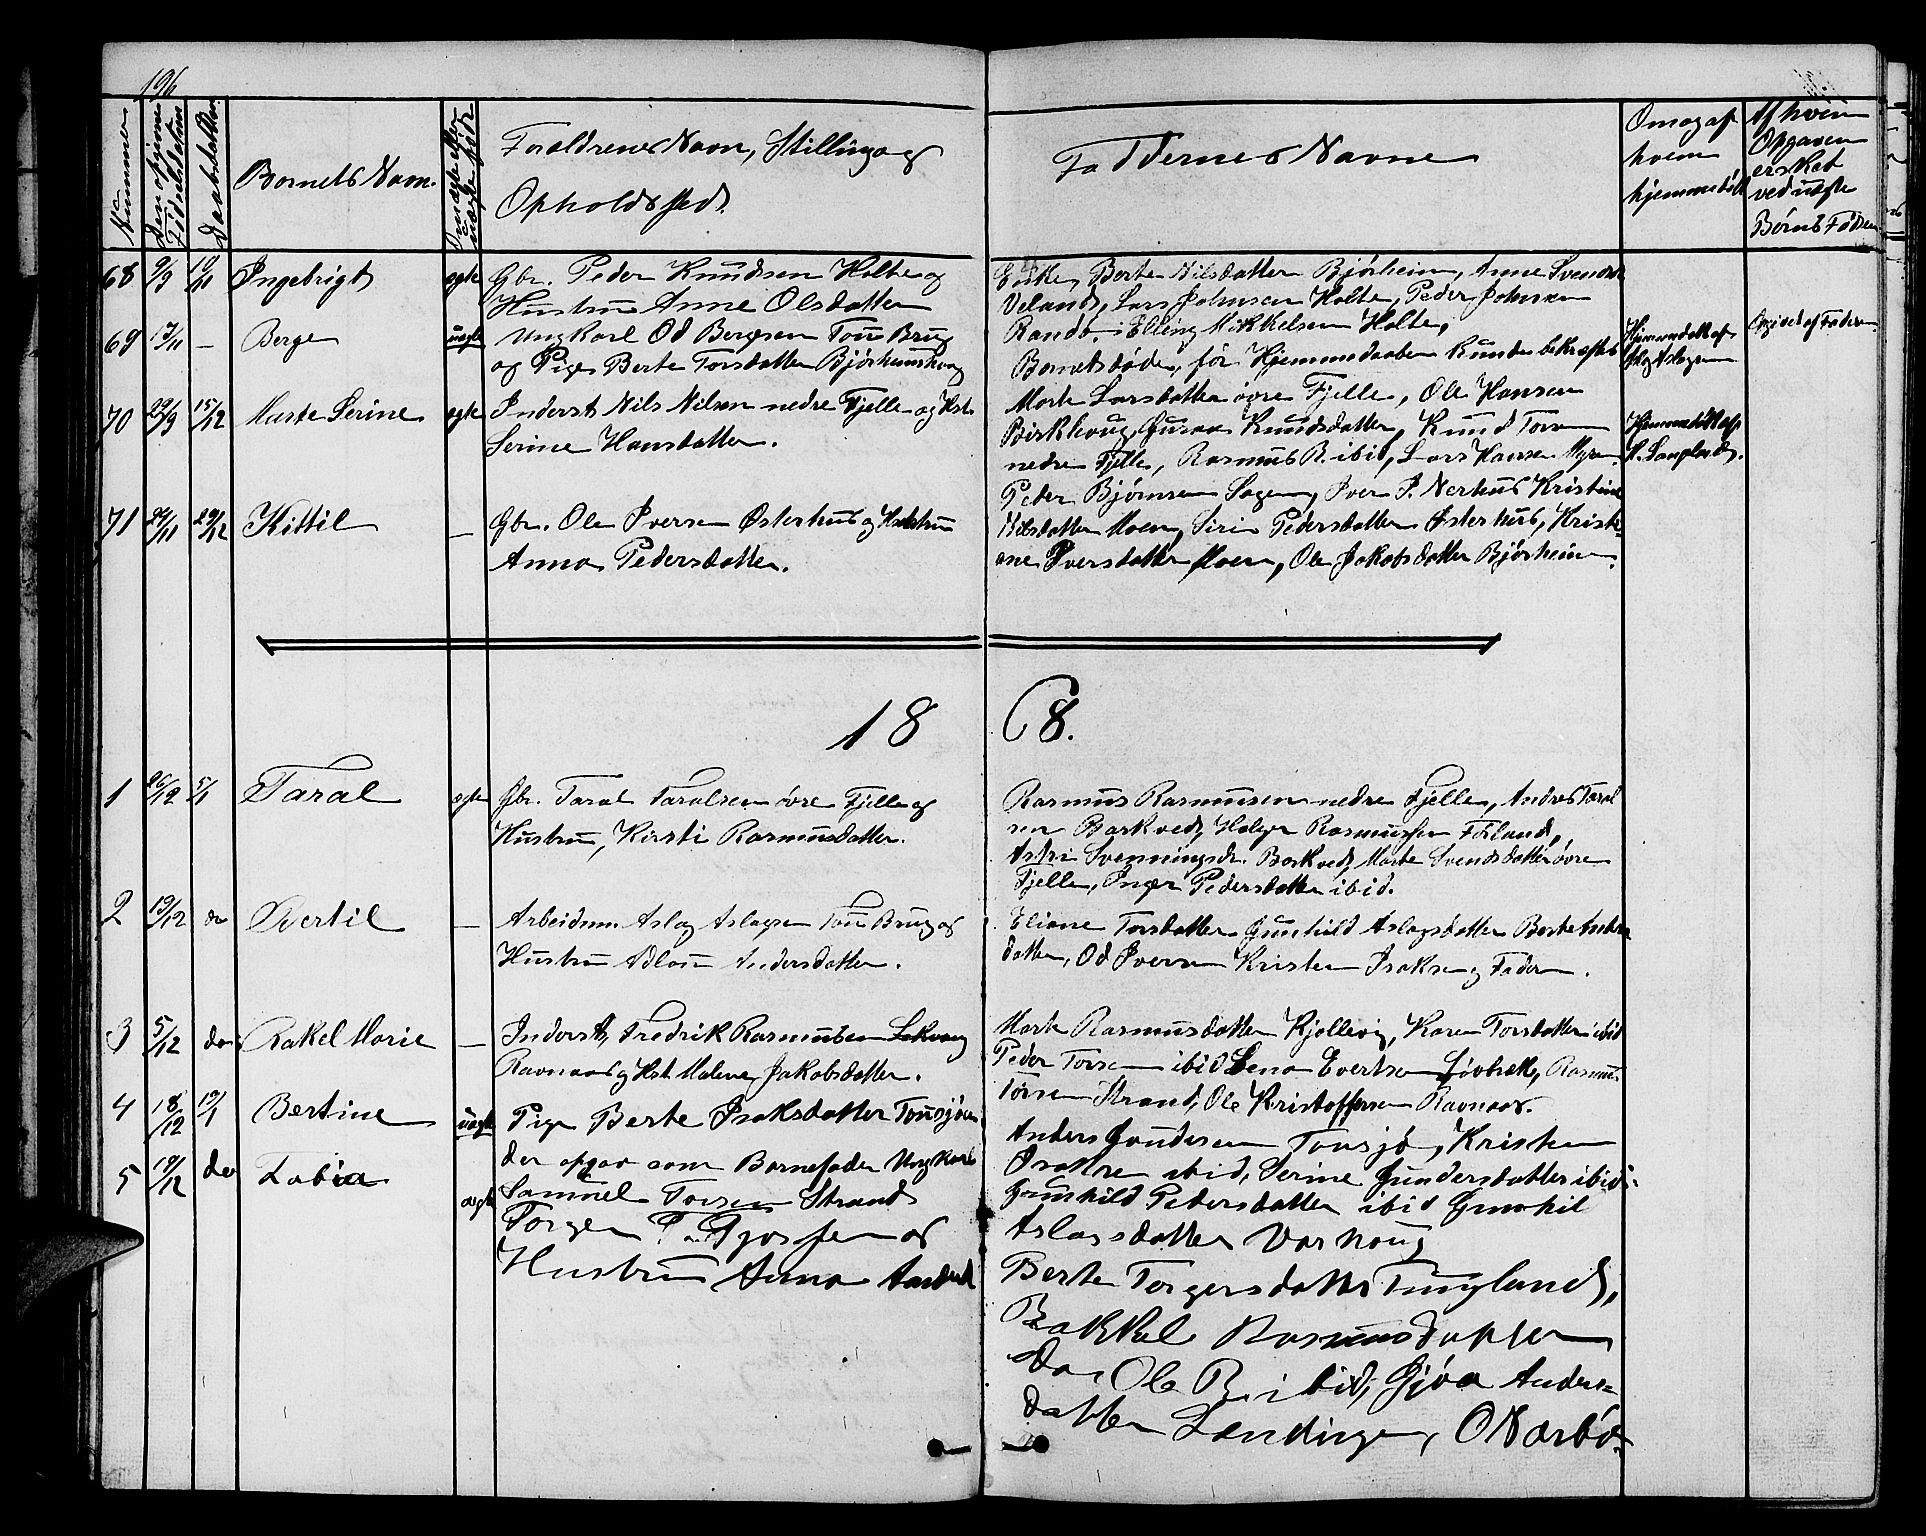 196
Nummer
Den opgivne Fødselsdatum
Daabsdatum
Barnets Navn.
Om ægte eller uægte født
Forældrenes Navn, Stilling og
Opholdssted.
Faddernes Navne
Om og af
hvem
hjemmedøbt
Af hvem
Opgaven
er sket
ved uægte
Børns Fødsel
68 9/9 10/11 Ingebrigt ægte Gbr. Peder Knudsen Holte og
Hustru Anne Olsdatter
Enke Berte Nilsdatter Bjørheim, Anne Svendsd.
Veland, Lars Johnsen Holte, Peder Johnsen
Randø. Elling Mikkelsen Holte,
69 13/11 — Berge uægte Ungkarl Od Bergesen Tou Brug
og Pige Berte Torsdatter Bjørheimshoug
Barnet døde, før Hjemmedaaben kunde bekræftes
Hjemmedøbt af
Aslag Aslagsen
Opgived af Faderen
70 29/9 15/12 Marte Serine ægte Inderst Nils Nilsen nedre Fjelle og Hst.
Serine Hansdatter.
Marte Larsdatter øvre Fjelle, Ole Hansen
Birkhoug, Knudsdatter, Knud Torsen
nedre Fjelle, Rasmus R. ibid, Lars Hansen
Hjemmedøbt af
71 24/11 29/12 Kittil — Gbr. Ole Iversen Østerhus og Hustru
Anna Pedersdatter.
Peder Bjørnsen Sagen, Iver P. Nerhus Kristine
Nilsdatter Moen, Siri Pedersdatter Østerhus, Kristi-
ane Iversdatter Moen, Ole Jakobsdatter Bjørheim.
1868.
1 26/12 5/1 Taral ægte Gbr. Taral Taralsen øvre Fjelle og
Hustru, Kirsti Rasmusdatter.
Rasmus Rasmussen nedre Fjelle, Andres Taral
sen Barkved, Holger Rasmussen
Astri Svenningsdr. Barkved, Marte Svendsdatter øvre
Fjelle, Inger Pedersdatter ibid.
2 19/12 do Bertil — Arbeidsm. Aslag Aslagsen Tou Brug og
Hustru Andersdatter.
Eliane Torsdatter Gunhild Aslagsdatter Berte Anders
datter, Od Iversen Kristen Isaksen og Faderen.
3 5/12 do Rakel Marie — Inderst, Fredrik Rasmussen
Ravnaas og Hst. Malene Jakobsdatter.
Marte Rasmusdatter Kjøllevig, Karen Torsdatter ibid
Peder Torsen ibid Lena Evertsen Løvbræk, Rasmus
Torsen Strand, Ole Kristoffersen Ravnaas.
4 18/12 19/1 Bertine uægte Pige Berte Isaksdatter Tousjøen
der opgav som Barnefader Ungkarl
Samuel Torsen Strand
Anders Gundersen Tousjø, Kristen
Isaksen ibid, Serine Gundersdatter ibid
Gunhild Pedersdatter ibid Gunhil
Aslagsdatter Varhoug
5 19/12 do Tobia ægte Torger T. og
Hustru Anna
Berte Torgersdatter Tungland,
Rakkel Rasmusdatter
do, Ole R. ibid, Gjøa Anders=
datter Lendinge, O Nærbø.